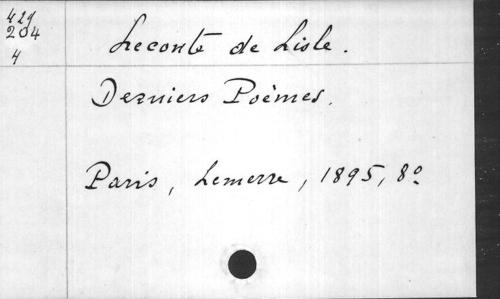 429
204
4
Leconte de Lisle.
Derniers Poèmes.
Paris, Lemerre, 1895, 8º